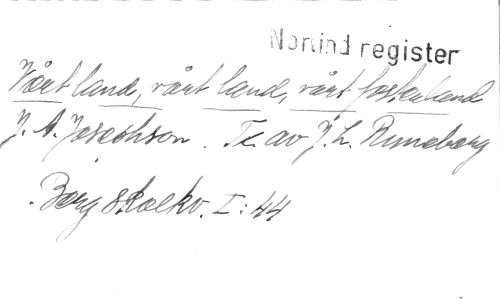 Norlind register
Vårt land, vårt land, vårt fosterland
J. A. Josephson. Tx. av J. L. Runeberg
Berg Skolkv. I: 44